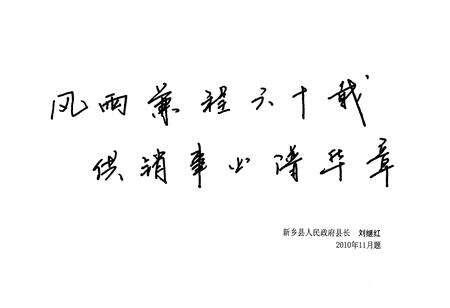 风雨兼程六十载
供销事业谱华章
新乡县人民政府县长 刘继红
2010年11月题